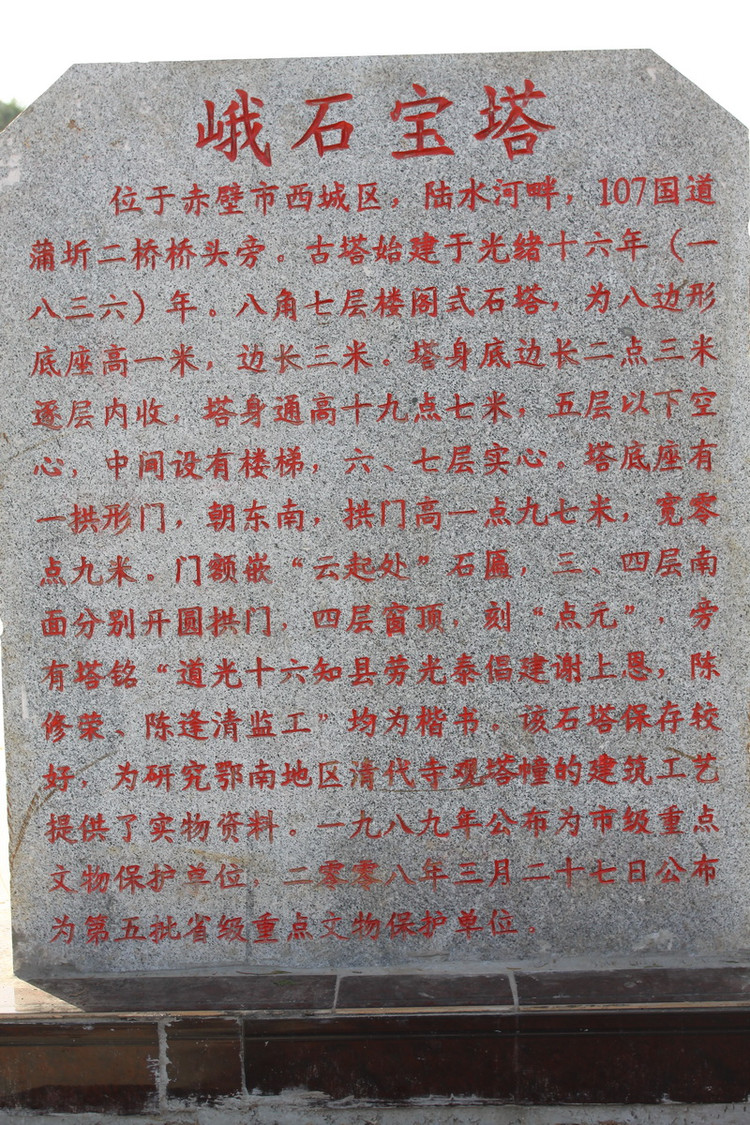 峨石宝塔
位于赤壁市西城区，陆水河畔，107国道
蒲圻二桥桥头旁。古塔始建于光绪十六年（一
八三六）年。八角七层楼阁式石塔，为八边形
底座高一米，边长三米。塔身底边长二点三米
逐层内收，塔身通高十九点七米，五层以下空
心，中间设有楼梯，六、七层实心。塔底座有
一拱形门，朝东南，拱门高一点九七米，宽零
点九米。门额嵌“云起处”石匾，三、四层南
面分别开圆拱门，四层窗顶，刻“点元”，旁
有塔铭“道光十六知县劳光泰倡建谢上恩，陈
修荣、陈逢清监工”均为楷书。该石塔保存较
好，为研究鄂南地区清代寺观塔幢的建筑工艺
提供了实物资料。一九八九年公布为市级重点
文物保护单位，二零零八年三月二十七日公布
为第五批省级重点文物保护单位。